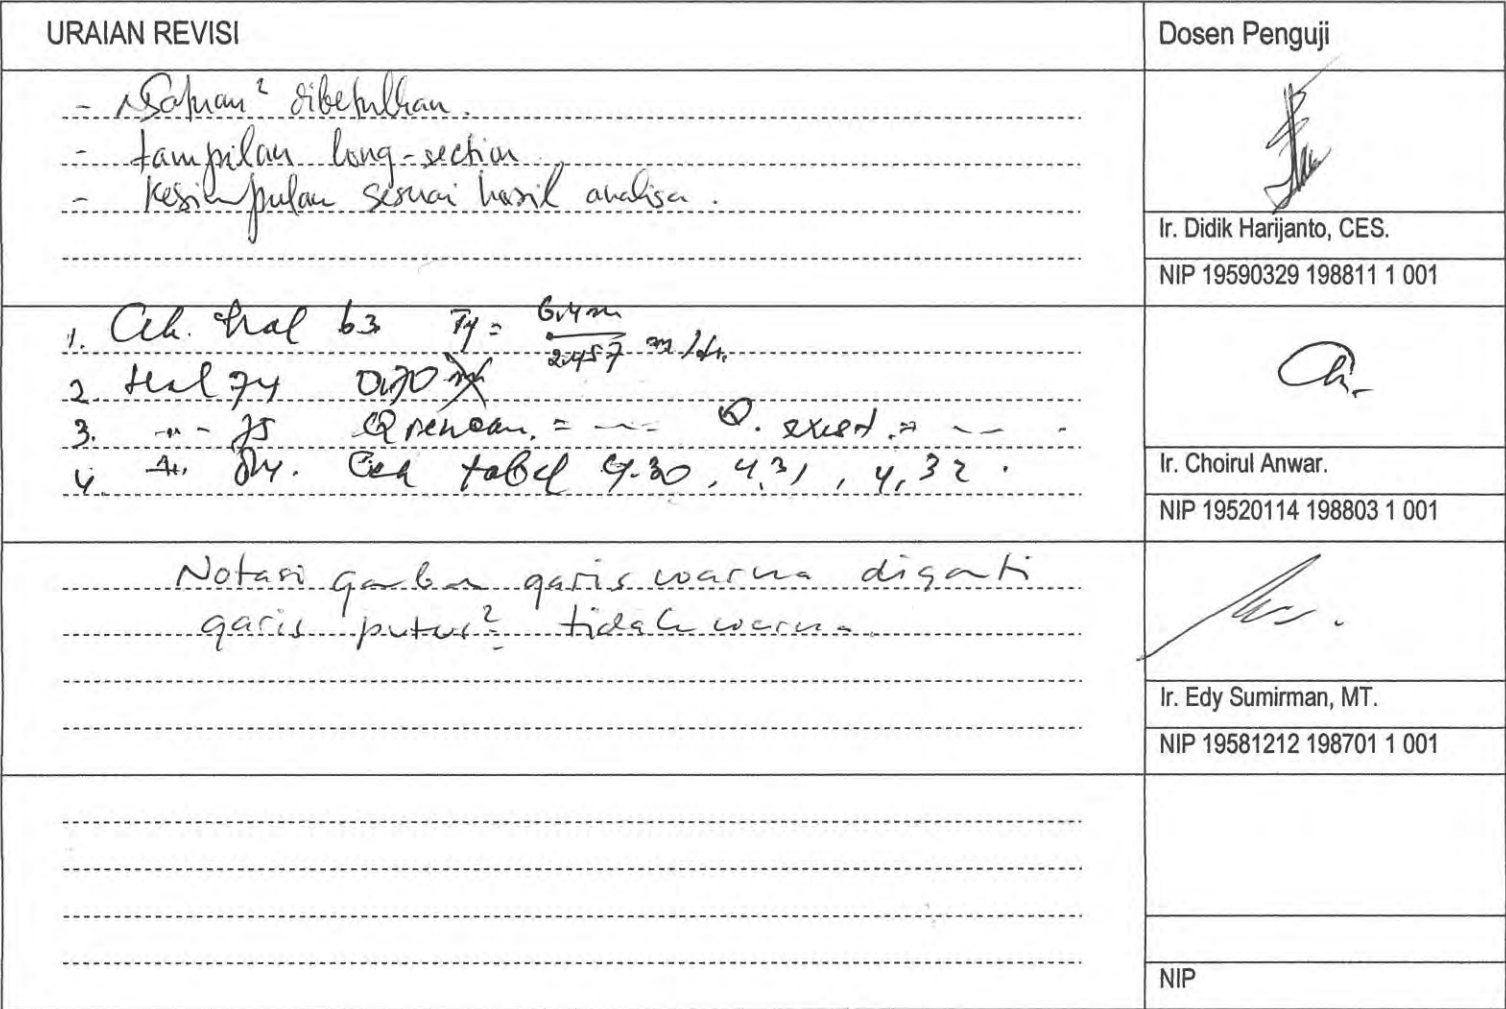 URAIAN REVISI
Dosen Penguji
- Satuan² dibetulkan.
- tampilan long-section
- Kesimpulan sesuai hasil analisa.
Ir. Didik Harijanto, CES.
NIP 19590329 198811 1 001
1. Cek. Hal 63 = 6.4 m
2.457
2. Hal 74 0.70
3. 75 Q rencan. = --- Q. exist. = ---
4. Cek tabel 4.30, 4,31, 4,32.
Ir. Choirul Anwar.
NIP 19520114 198803 1 001
Notasi gambar garis warna diganti
garis putus² tidak warna
Ir. Edy Sumirman, MT.
NIP 19581212 198701 1 001
NIP